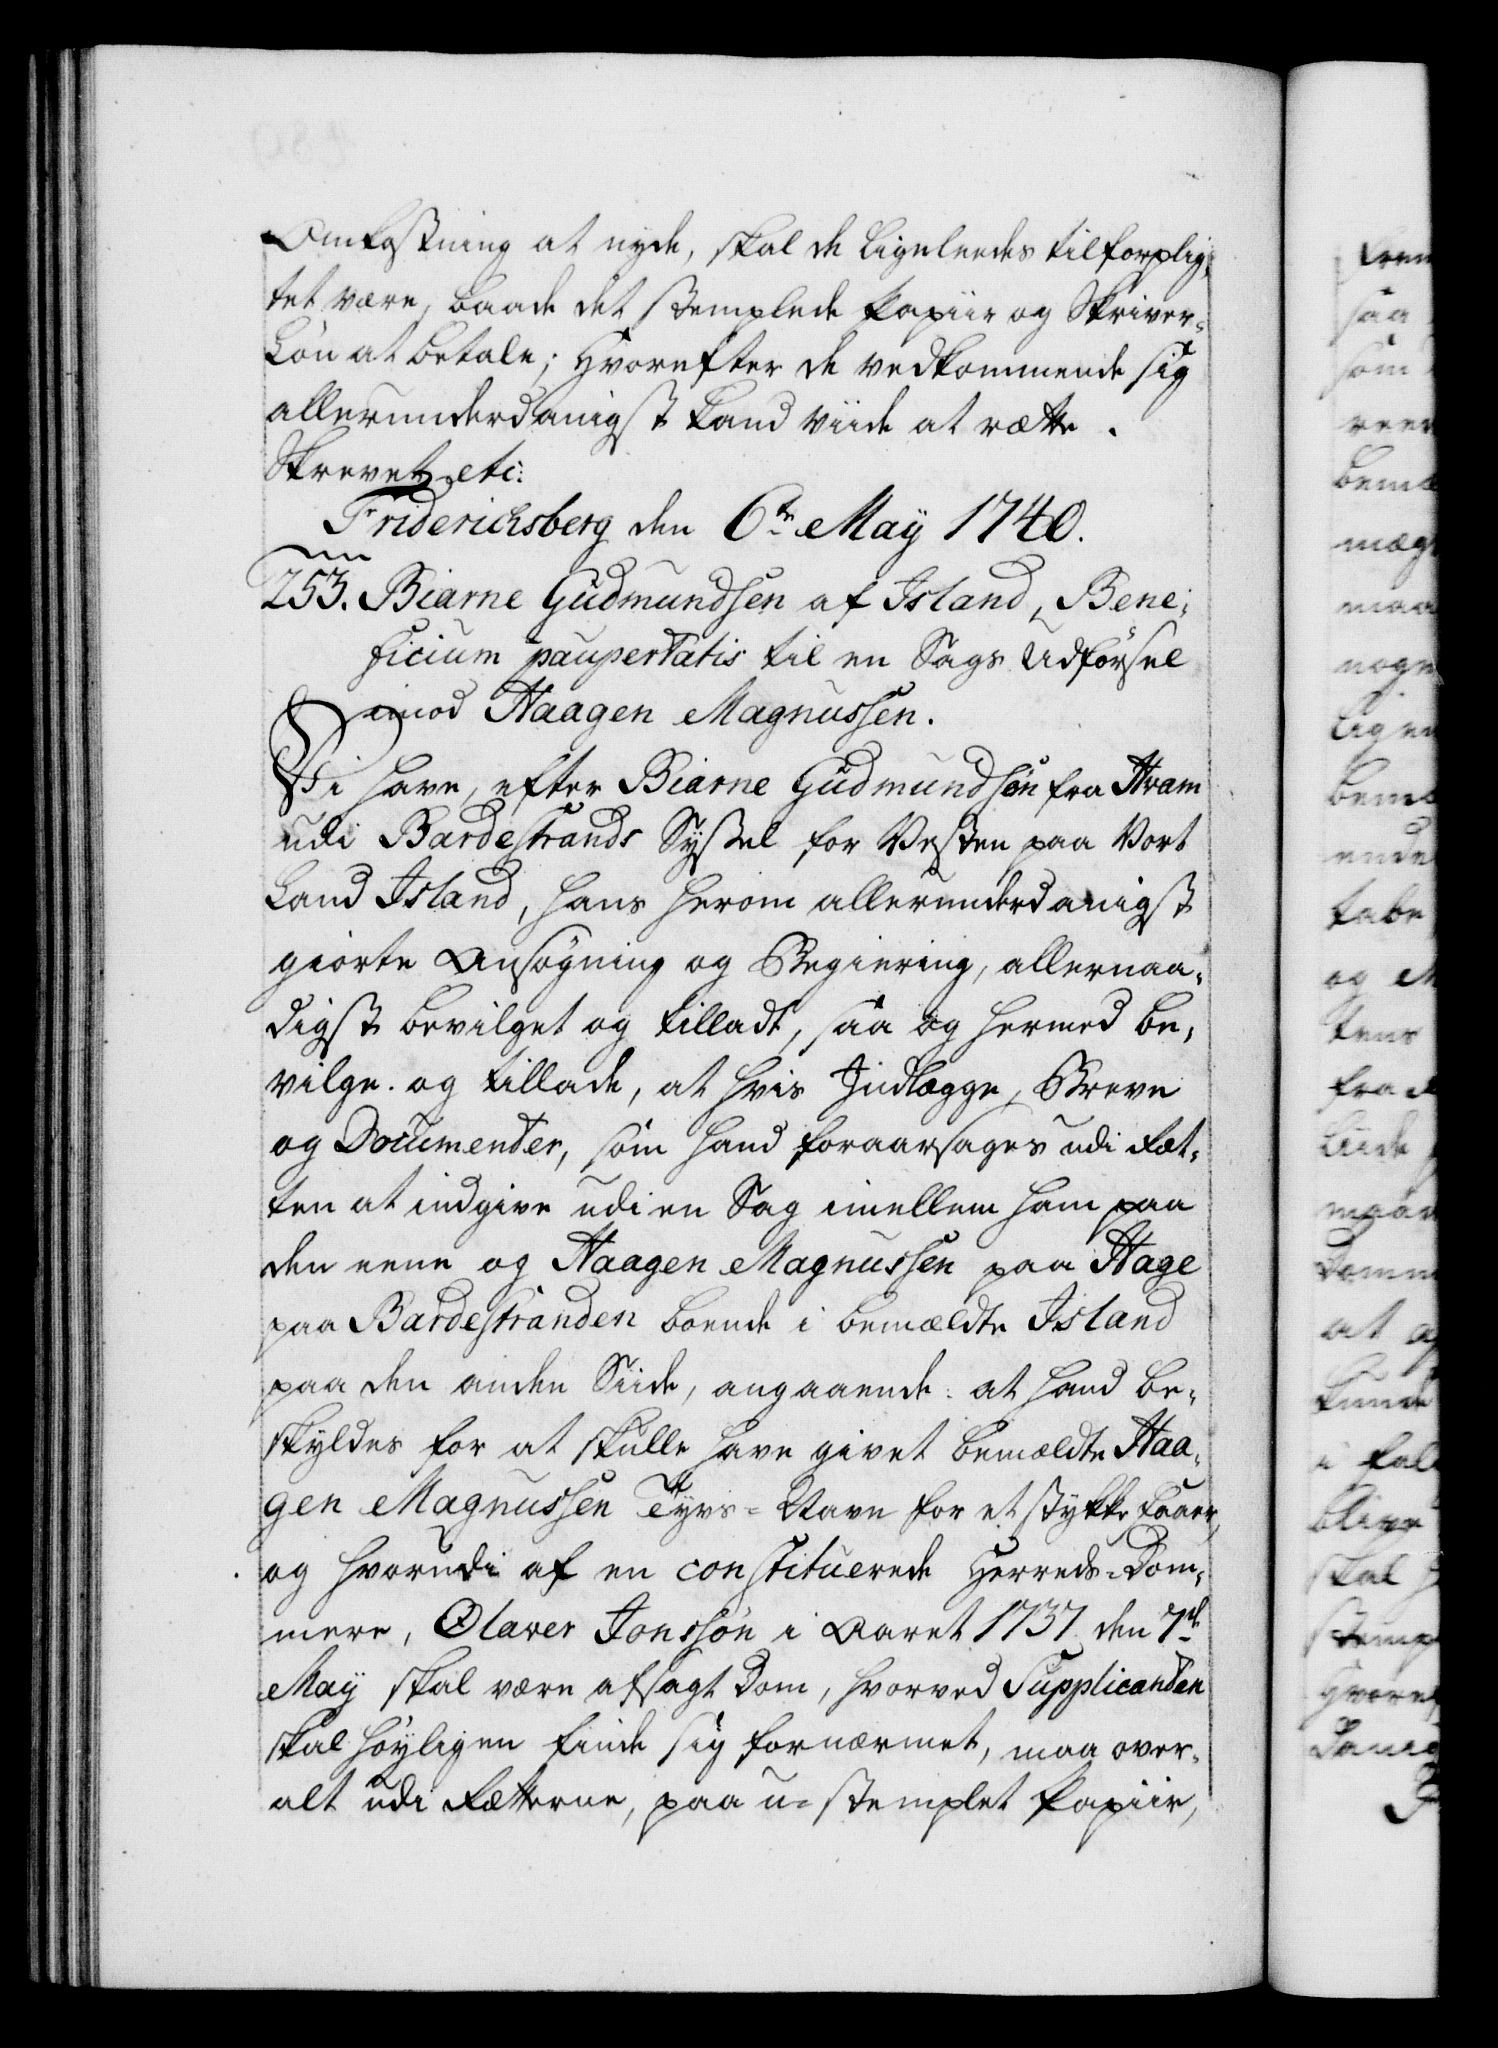 Omkostning at nyde, skal de ligeleedes tilforplig,
tet være, baade det stemplede Papiir og Skriver-
Løn at betale; Hvorefter de vedkommende sig
allerunderdanigst haver at rette.
Skrevet etc:
Friderichsberg den 6te May 1740.
253. Biarne Gudmundsen af Island, Bene,
ficium paupertatis til en Sags Udførsel
imod Haagen Magnussen.
Vi have, efter Biarne Gudmundsøn fra Hram
udi Bardestrands Syssel for Vesten paa Vort
Land Island, hans herom allerunderdanigst
giorte Ansøgning og Begiering, allernaa,
digst bevilget og tilladt, saa og hermed be,
vilge og tillade, at hvis Indlægge, Breve
og Documenter, som hand foraarsages udi Ræt,
ten at indgive udi en Sag imellem ham paa
den eene og Haagen Magnussen paa Hage
paa Bardestranden boende i bemældte Island
paa den anden Siide, angaaende at hand be,
skyldes for at skulle have givet bemældte Haa,
gen Magnussen Tyvs-Navn for et stykke Faar,
og hvorudi af en constituerede Herreds-Dom,
mere, Olaver Jonssøn i Aaret 1737 den 7de
May skal være afsagt Dom, hvorved Supplicanten
skal høyligen finde sig fornærmet, maa over,
alt udi Rætterne, paa u-stemplet Papiir,